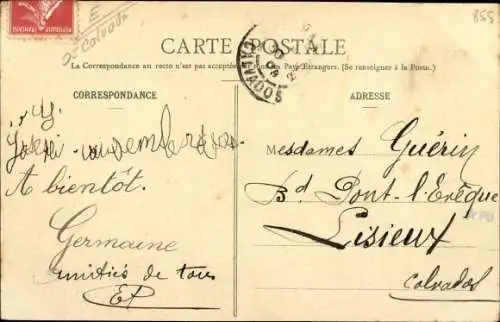 855
E
Calvados
CARTE POSTALE
La Correspondance au recto n'est pas acceptée Pays Étrangers. (Se renseigner à la Poste.)
CALVADOS
CORRESPONDANCE
ADRESSE
A bientôt.
Germaine
amitiés de tous
EP
Mesdames Guérin
Bd Pont-l'Evêque
Lisieux
Calvados